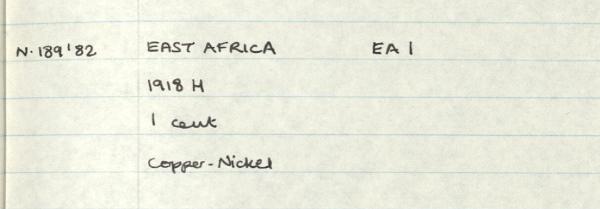 N.189'82 EAST AFRICA EA 1
1918 H
1 cent
Copper-Nickel